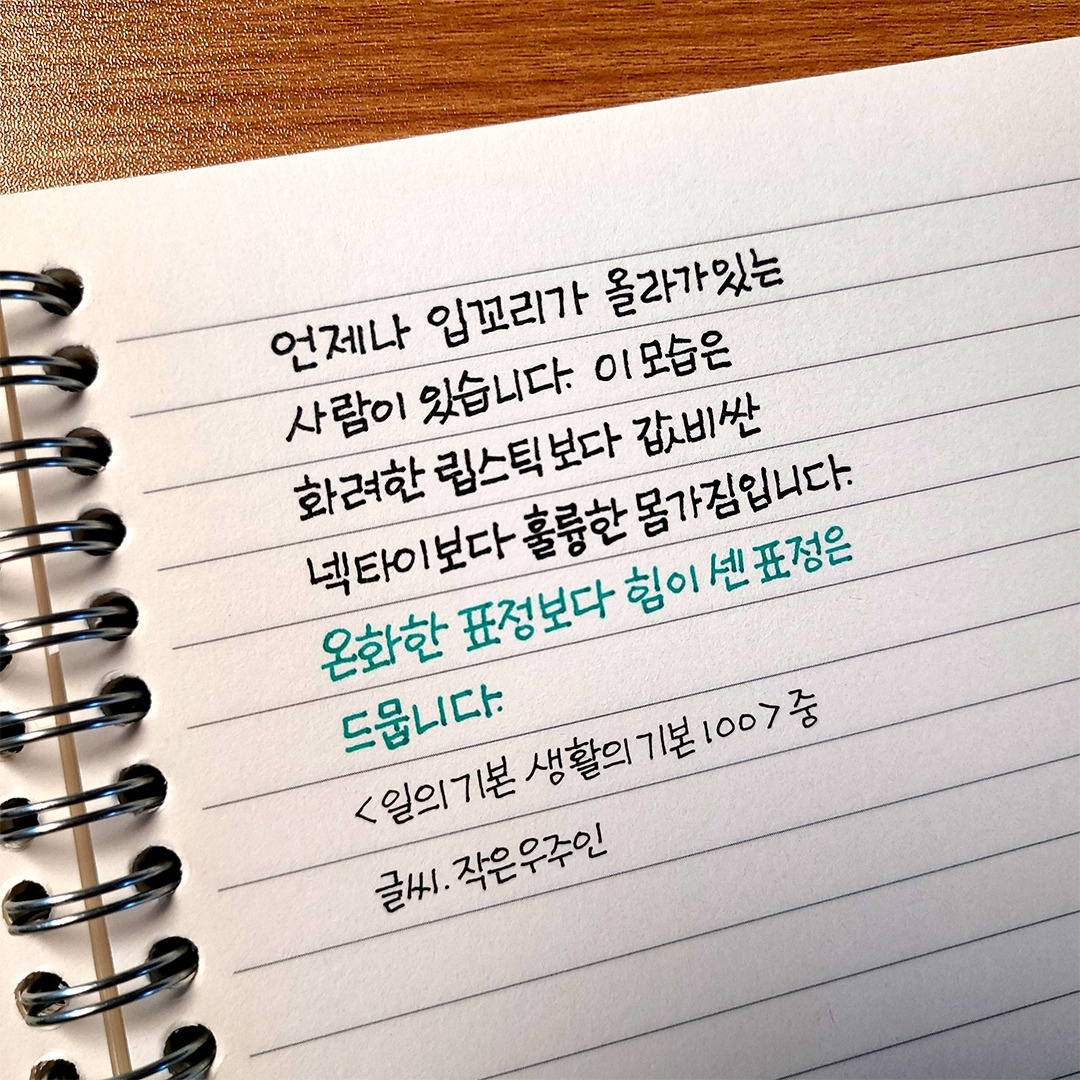 언제나 입꼬리가 올라가있는
사람이 있습니다. 이 모습은
화려한 립스틱보다 값비싼
넥타이보다 훌륭한 몸가짐입니다.
온화한 표정보다 힘이 센 표정은
드뭅니다.
<일의 기본 생활의 기본 100> 중
글씨. 작은우주인